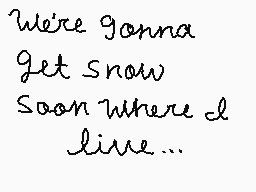 We're gonna
get snow
soon where I
live...